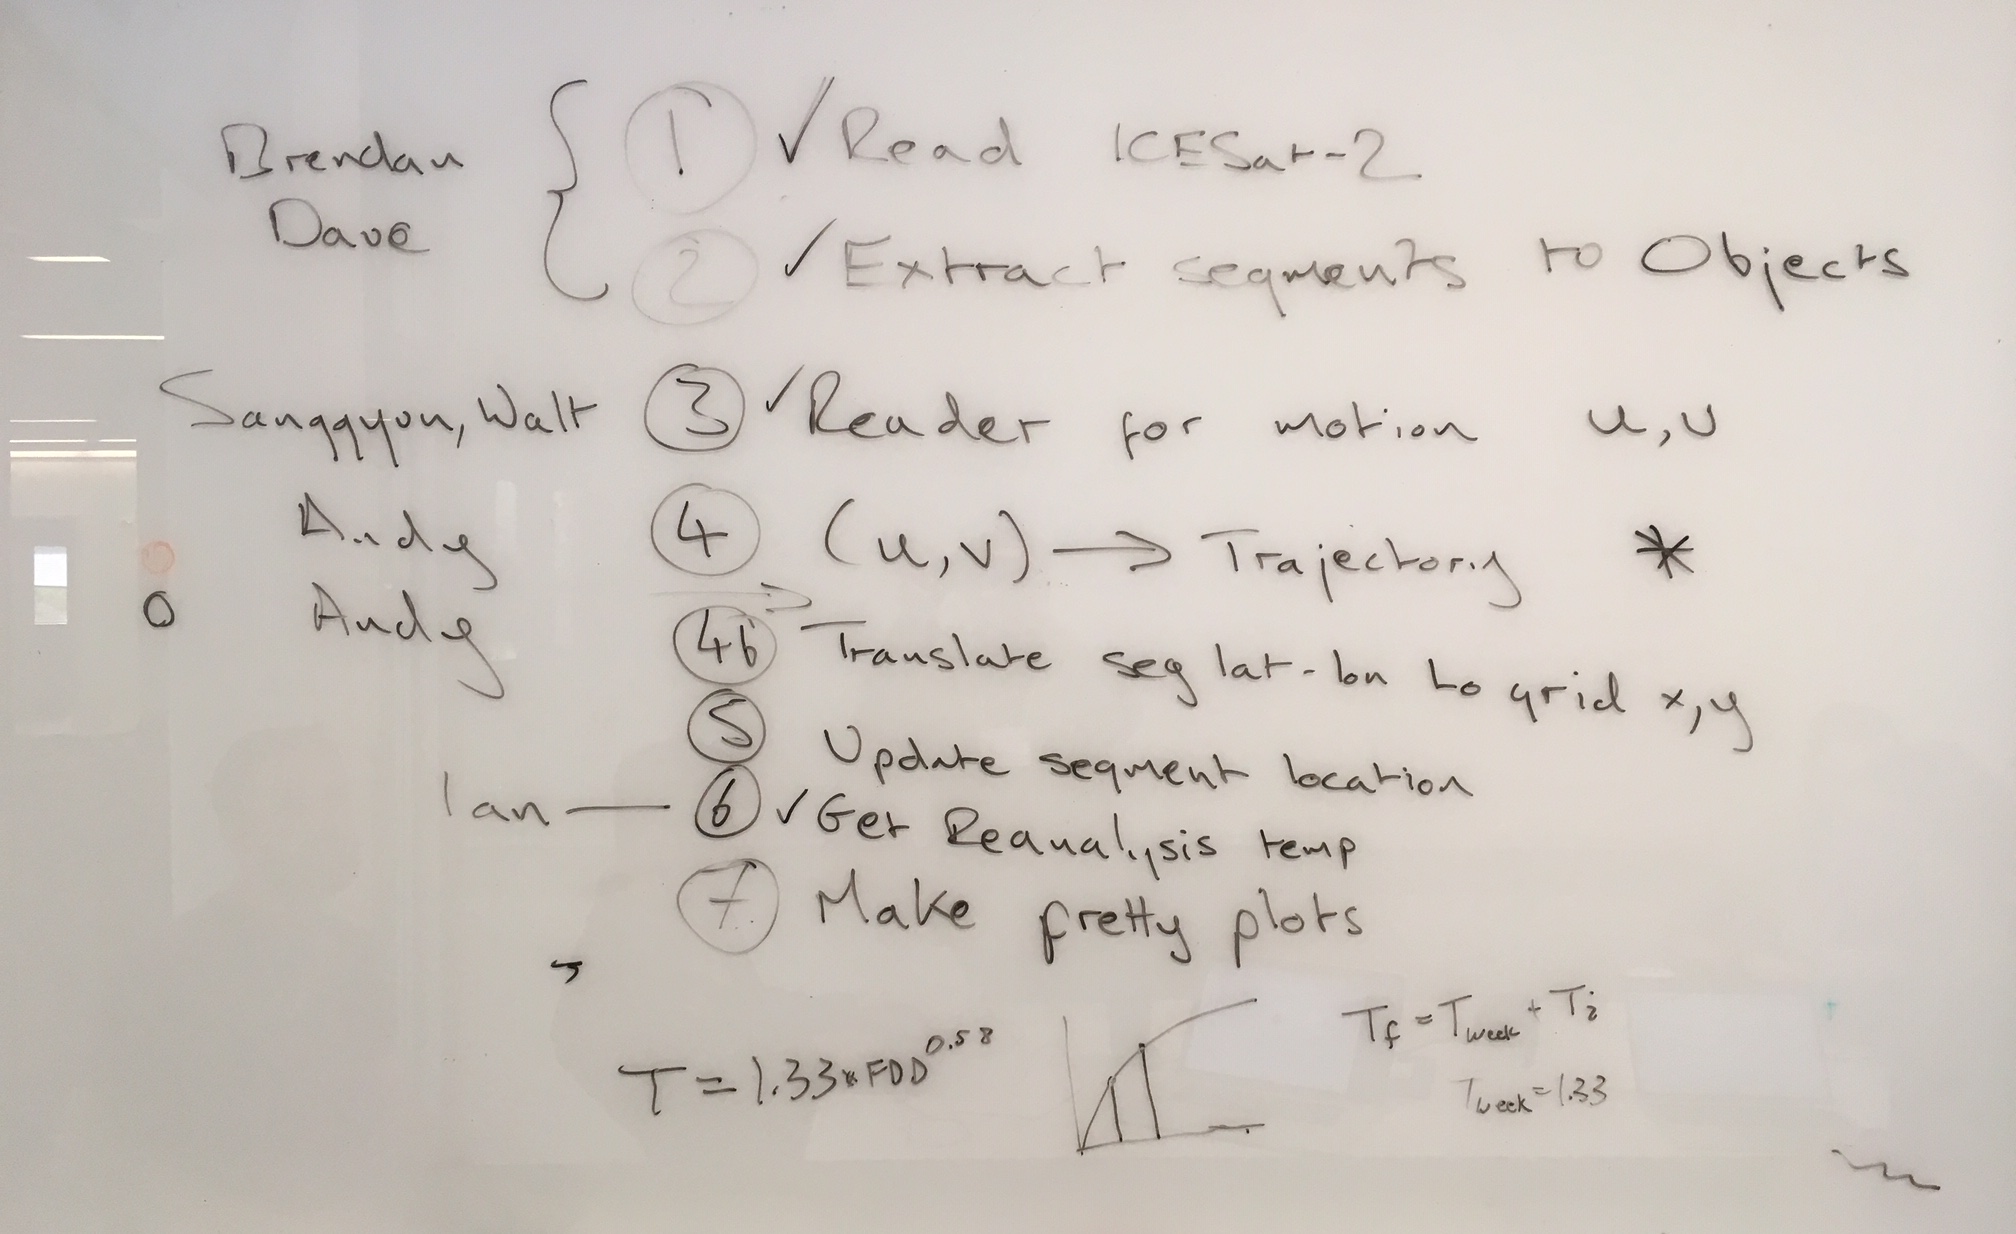 Brendan
Dave
1 ✓ Read ICESat-2
2 ✓ Extract segments to Objects
Sanggyun, Walt 3 ✓ Reader for motion u,v
Andy 4 (u,v) → Trajectory *
Andy 4b Translate seg lat-lon to grid x,y
5 Update segment location
Ian — 6 ✓ Get Reanalysis temp
7 Make pretty plots
T = 1.33 * FDD^0.58
Tf = Tweek + Ti
Tweek = 1.33